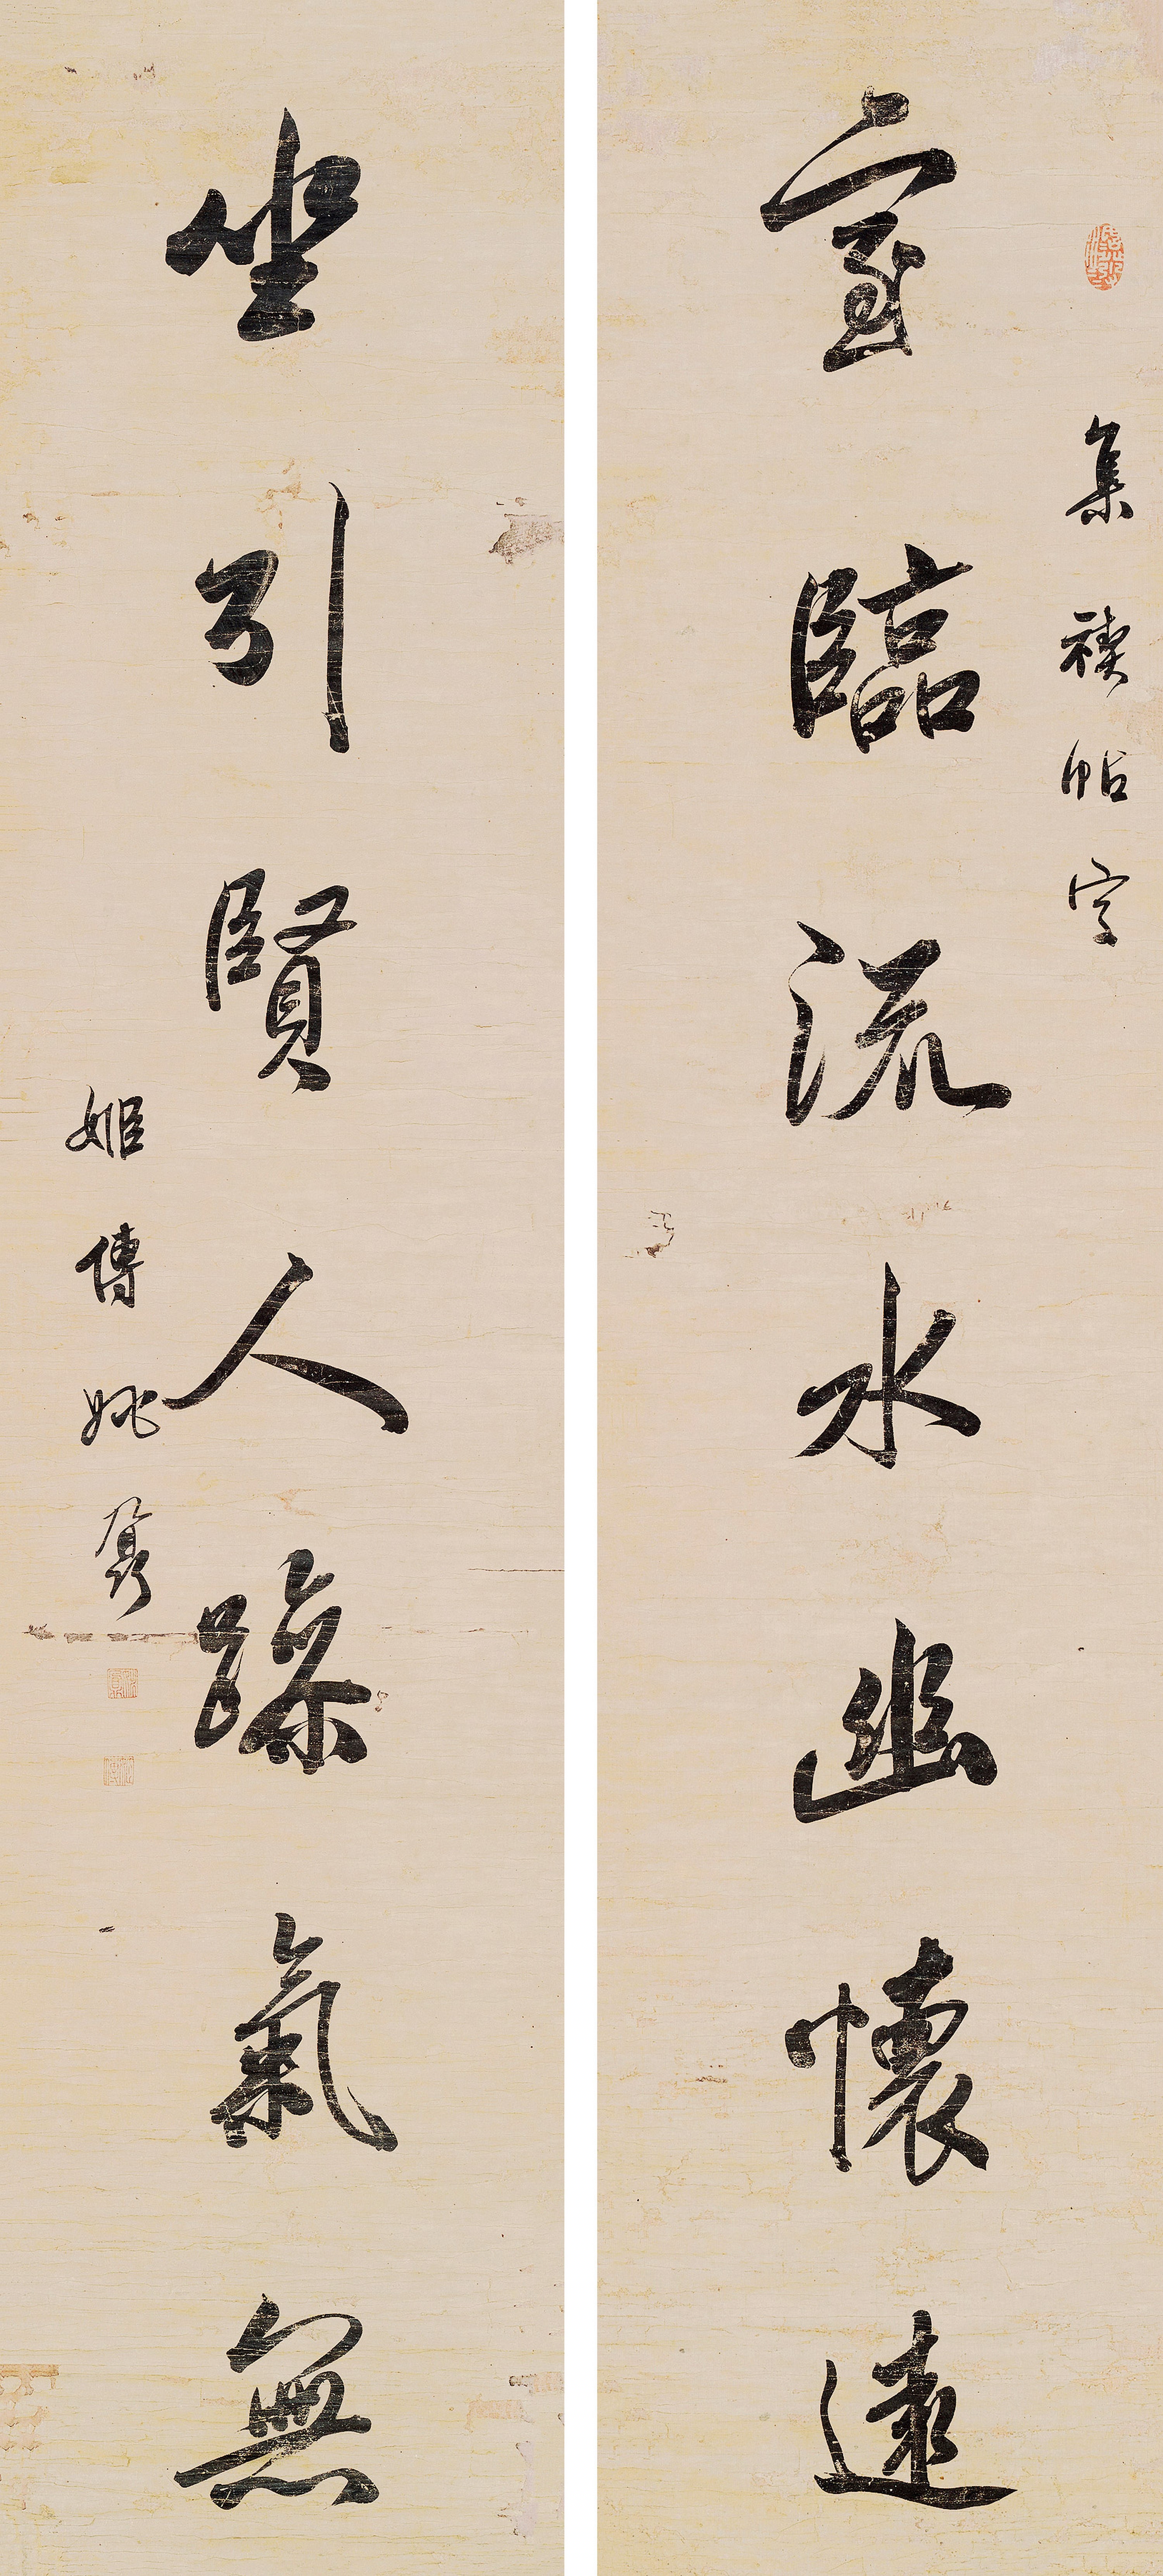 集禊帖字
室臨流水幽懷遠
坐引賢人躁氣無
姬傳姚鼐